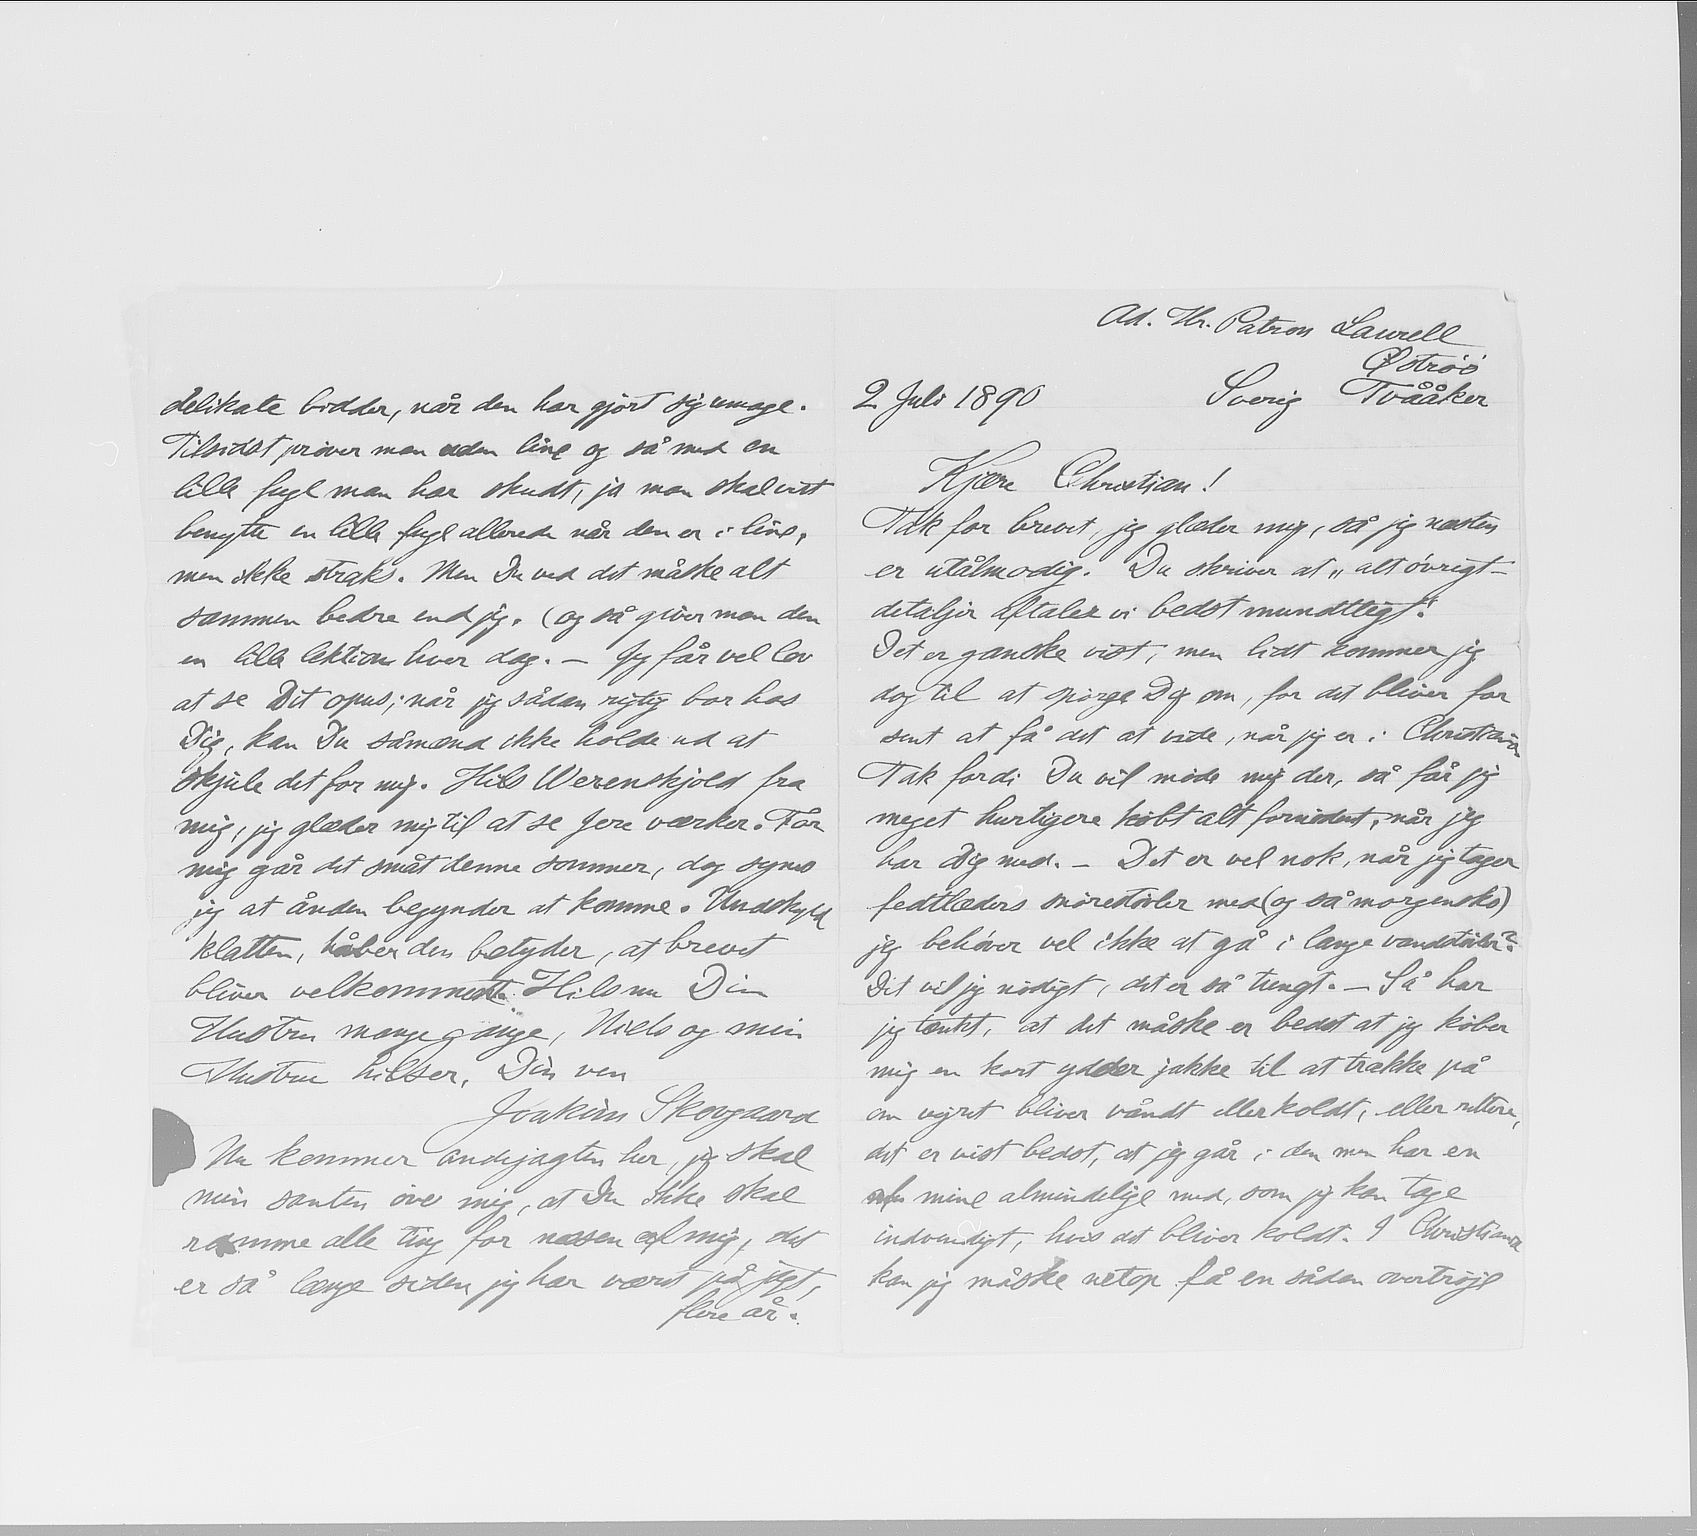 Ad. Hr. Patron Laurell
Öströö
2 Juli 1890 Sverig Tvååker
Kjære Christian!
Tak for brevet, jeg glæder mig, så jeg næsten
er utålmodig. Du skriver at "alt övrigt-
detaljer aftaler vi bedst mundtligt".
Det er ganske vist, men lidt kommer jeg
dog til at spörge Dig om, for det bliver for
sent at få det at vide, når jeg er i Christiania
Tak fordi Du vil möde mig der, så får jeg
meget hurtigere köbt alt fornödent, når jeg
har Dig med. – Det er vel nok, når jeg tager
fedtlæders snörestövler med (og så morgensko)
jeg behöver vel ikke at gå i lange vandstövler?
Det vil jeg nödigt, det er så tungt. – Så har
jeg tænkt, at det måske er bedst at jeg köber
mig en kort ydder jakke til at trække på
om vejret bliver våndt eller koldt, eller rettere,
det er vist bedst, at jeg går i den men har en
af mine almindelige med, som jeg kan tage
indvendigt, hvis det bliver koldt. I Christiania
kan jeg måske netop få en sådan overtröje
delikate bidder, når den har gjort sig umage.
Tilsidst pröver man uden line og så med en
lille fugl man har skudt, ja man skal vist
benytte en lille fugl allerede når den er i line,
men ikke straks. Men Du ved det måske alt
sammen bedre end jeg. (og så giver man den
en lille lektion hver dag. – Jeg får vel lov
at se Dit opus; når jeg sådan rigtig bor hos
Dig, kan Du såmænd ikke holde ud at
skjule det for mig. Hils Werenskjold fra
mig, jeg glæder mig til at se Jere værker. For
mig går det småt denne sommer, dog synes
jeg at ånden begynder at komme. Undskyld
klatten, håber den betyder, at brevet
bliver velkomment. Hils nu Din
Hustru mange gange, Niels og min
Hustru hilser, Din ven
Joakim Skovgaard
Nu kommer andejagten her, jeg skal
min santen öve mig, at Du ikke skal
ramme alle ting for næsen af mig, det
er så længe siden jeg har været på jagt,
flere år.